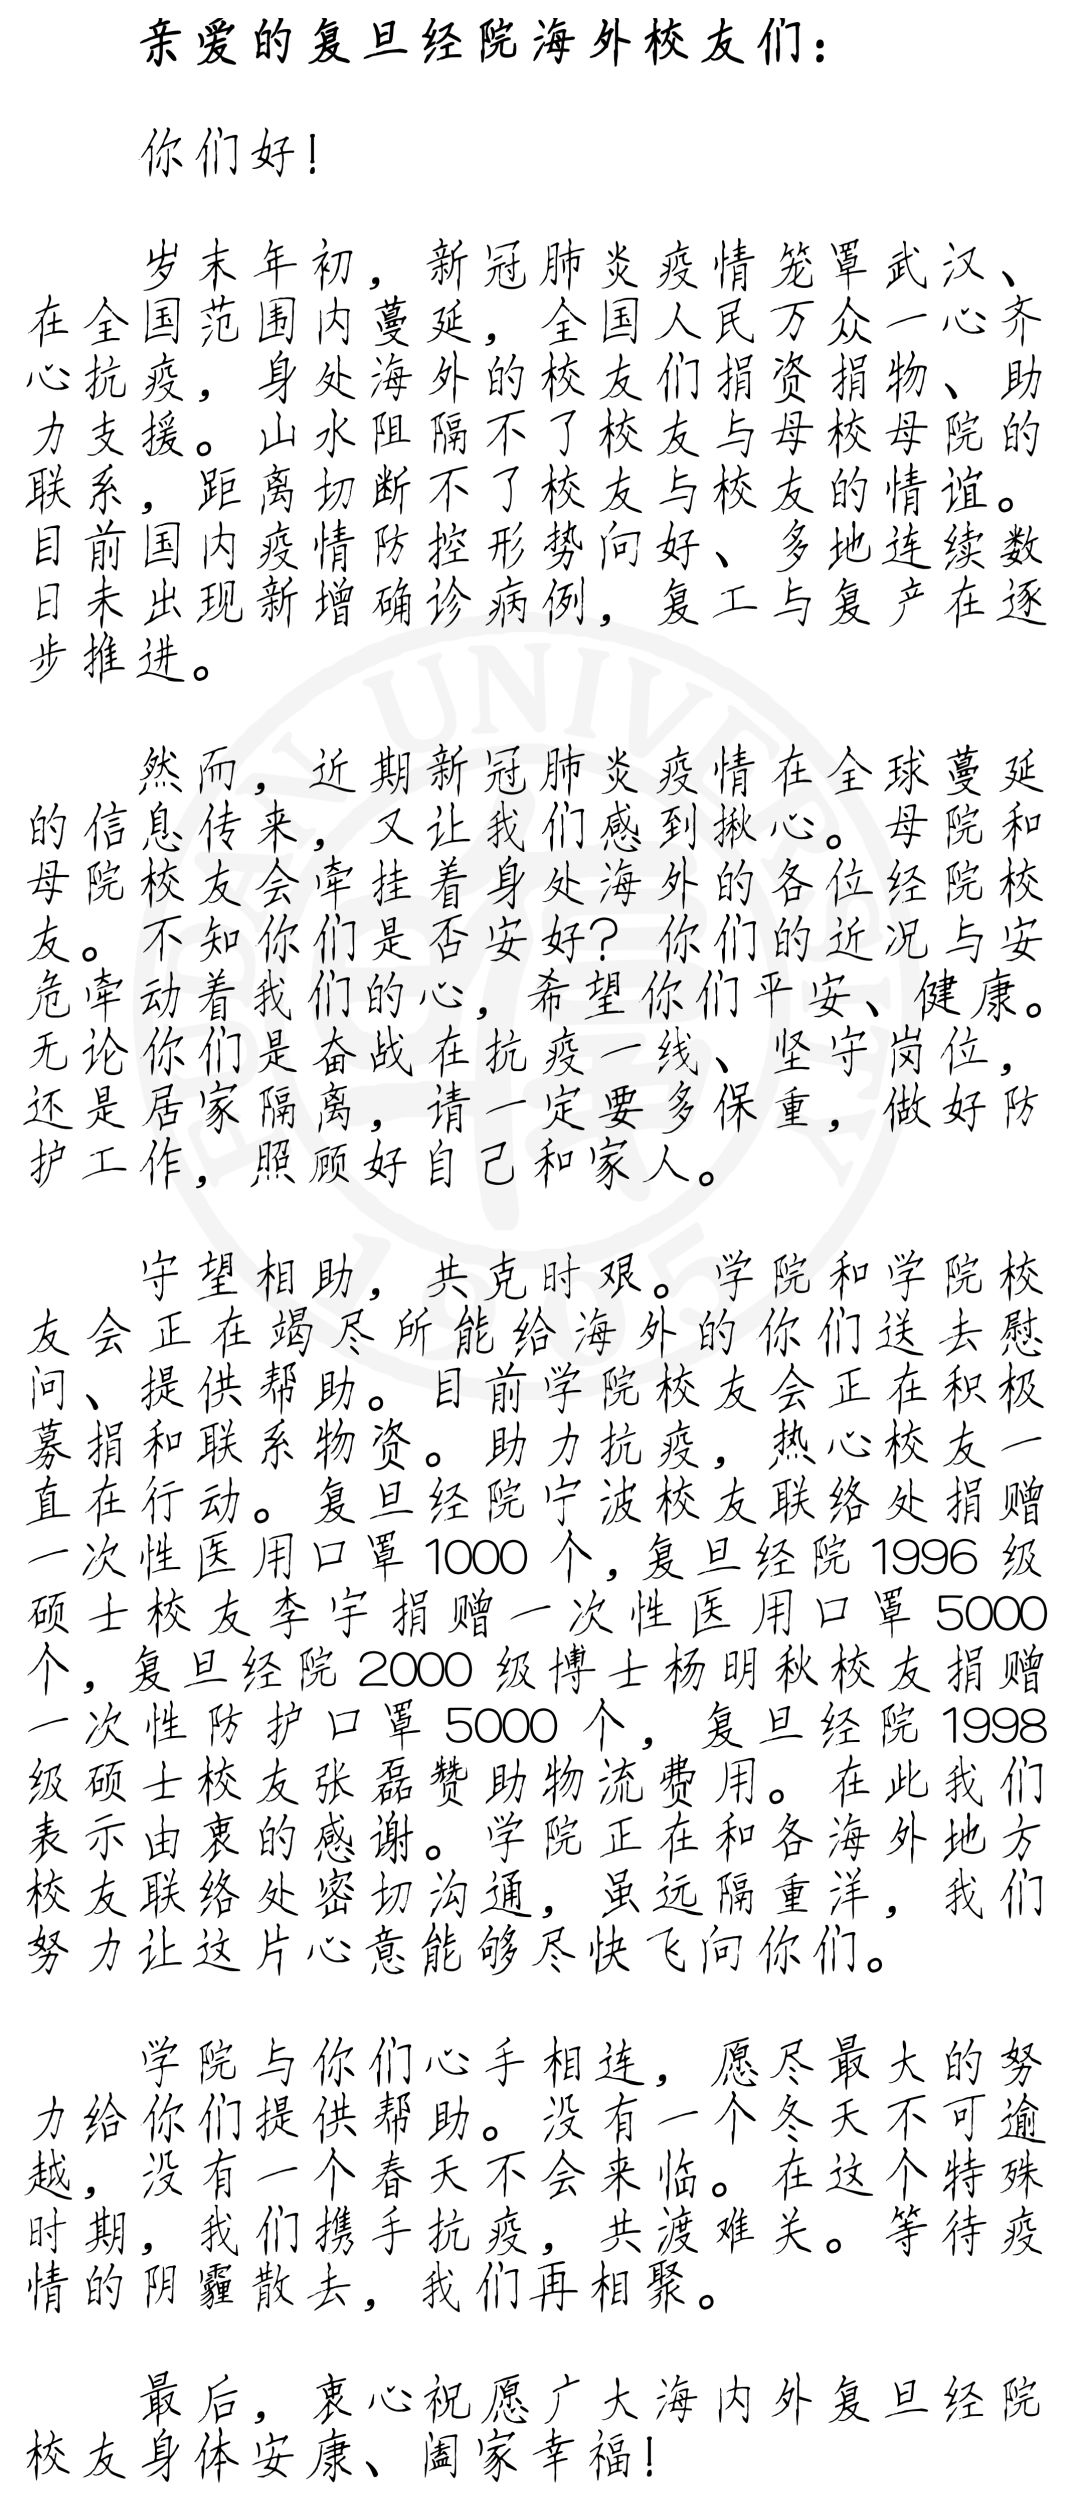 亲爱的复旦经院海外校友们：
你们好！
岁末年初，新冠肺炎疫情笼罩武汉、
在全国范围内蔓延，全国人民万众一心齐
心抗疫，身处海外的校友们捐资捐物、助
力支援。山水阻隔不了校友与母校母院的
联系，距离切断不了校友与校友的情谊。
目前国内疫情防控形势向好、多地连续数
日未出现新增确诊病例，复工与复产在逐
步推进。
然而，近期新冠肺炎疫情在全球蔓延
的信息传来，又让我们感到揪心。母院和
母院校友会牵挂着身处海外的各位经院校
友。不知你们是否安好？你们的近况与安
危牵动着我们的心，希望你们平安、健康。
无论你们是奋战在抗疫一线、坚守岗位，
还是居家隔离，请一定要多保重，做好防
护工作，照顾好自己和家人。
守望相助，共克时艰。学院和学院校
友会正在竭尽所能给海外的你们送去慰
问、提供帮助。目前学院校友会正在积极
募捐和联系物资。助力抗疫，热心校友一
直在行动。复旦经院宁波校友联络处捐赠
一次性医用口罩1000个，复旦经院1996级
硕士校友李宇捐赠一次性医用口罩5000
个，复旦经院2000级博士杨明秋校友捐赠
一次性防护口罩5000个，复旦经院1998
级硕士校友张磊赞助物流费用。在此我们
表示由衷的感谢。学院正在和各海外地方
校友联络处密切沟通，虽远隔重洋，我们
努力让这片心意能够尽快飞向你们。
学院与你们心手相连，愿尽最大的努
力给你们提供帮助。没有一个冬天不可逾
越，没有一个春天不会来临。在这个特殊
时期，我们携手抗疫，共渡难关。等待疫
情的阴霾散去，我们再相聚。
最后，衷心祝愿广大海内外复旦经院
校友身体安康、阖家幸福！